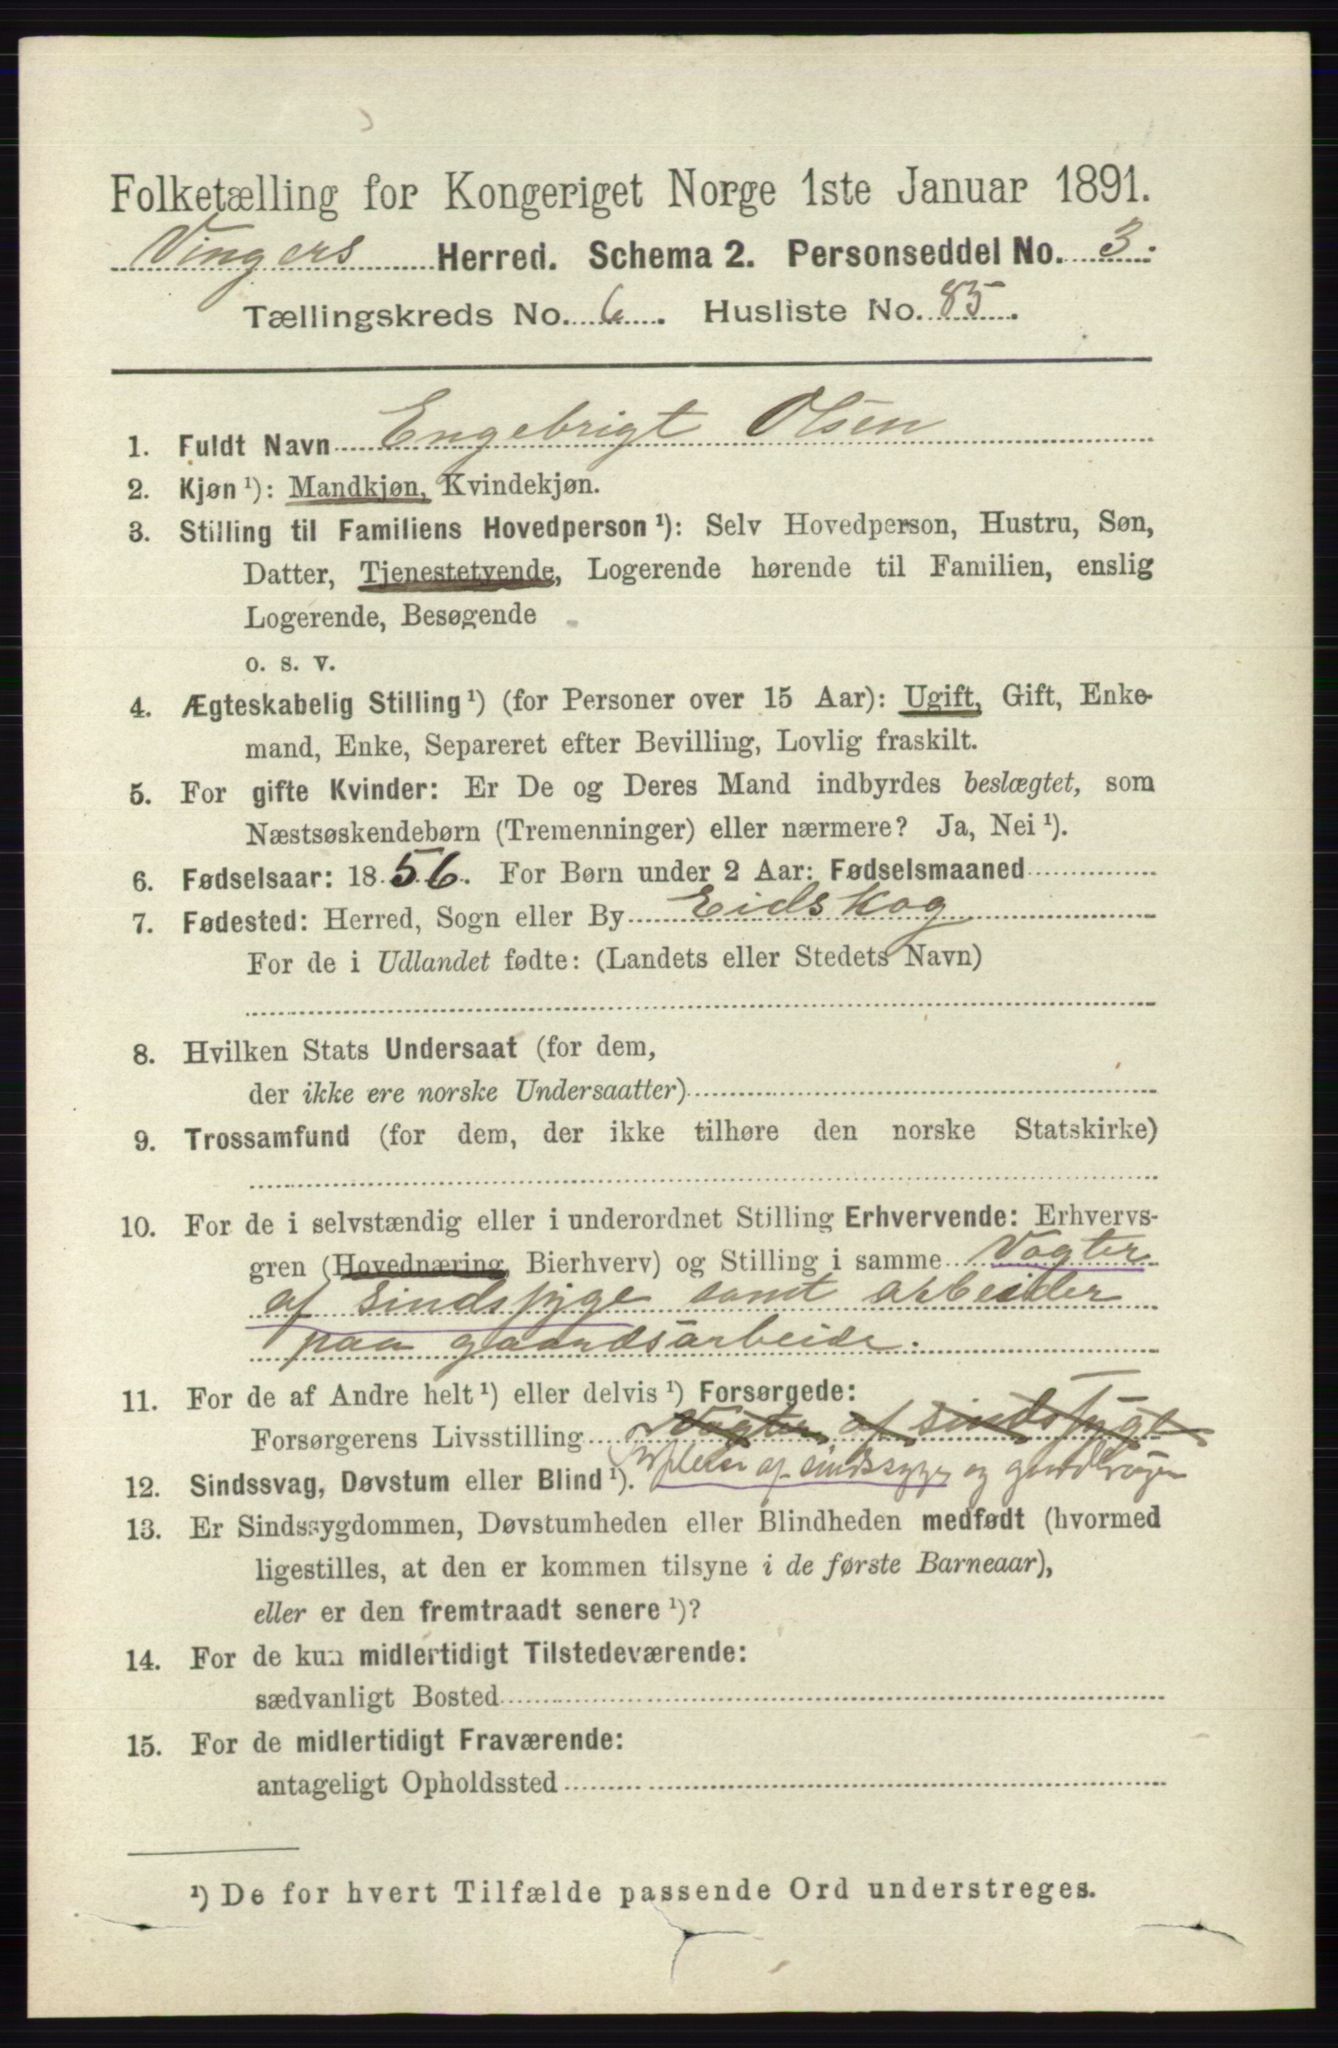 Folketælling for Kongeriget Norge 1ste Januar 1891.
Vingers Herred. Schema 2. Personseddel No. 3.
Tællingskreds No. 6. Husliste No. 85.
1. Fuldt Navn Engebrigt Olsen
2. Kjøn ¹): Mandkjøn, Kvindekjøn.
3. Stilling til Familiens Hovedperson ¹): Selv Hovedperson, Hustru, Søn,
Datter, Tjenestetyende, Logerende hørende til Familien, enslig
Logerende, Besøgende
o. s. v.
4. Ægteskabelig Stilling ¹) (for Personer over 15 Aar): Ugift, Gift, Enke-
mand, Enke, Separeret efter Bevilling, Lovlig fraskilt.
5. For gifte Kvinder: Er De og Deres Mand indbyrdes beslægtet, som
Næstsøskendebørn (Tremenninger) eller nærmere? Ja, Nei ¹).
6. Fødselsaar: 1856. For Børn under 2 Aar: Fødselsmaaned
7. Fødested: Herred, Sogn eller By Eidskog
For de i Udlandet fødte: (Landets eller Stedets Navn)
8. Hvilken Stats Undersaat (for dem,
der ikke ere norske Undersaatter)
9. Trossamfund (for dem, der ikke tilhøre den norske Statskirke)
10. For de i selvstændig eller i underordnet Stilling Erhvervende: Erhvervs-
gren (Hovednæring, Bierhverv) og Stilling i samme Vogter
af sindssyge samt arbeider
paa gaardsarbeide.
11. For de af Andre helt ¹) eller delvis ¹) Forsørgede:
Forsørgerens Livsstilling Vogter af sindssyge
12. Sindssvag, Døvstum eller Blind ¹). af sindssyge og
13. Er Sindssygdommen, Døvstumheden eller Blindheden medfødt (hvormed
ligestilles, at den er kommen tilsyne i de første Barneaar),
eller er den fremtraadt senere ¹)?
14. For de kun midlertidigt Tilstedeværende:
sædvanligt Bosted
15. For de midlertidigt Fraværende:
antageligt Opholdssted
¹) De for hvert Tilfælde passende Ord understreges.